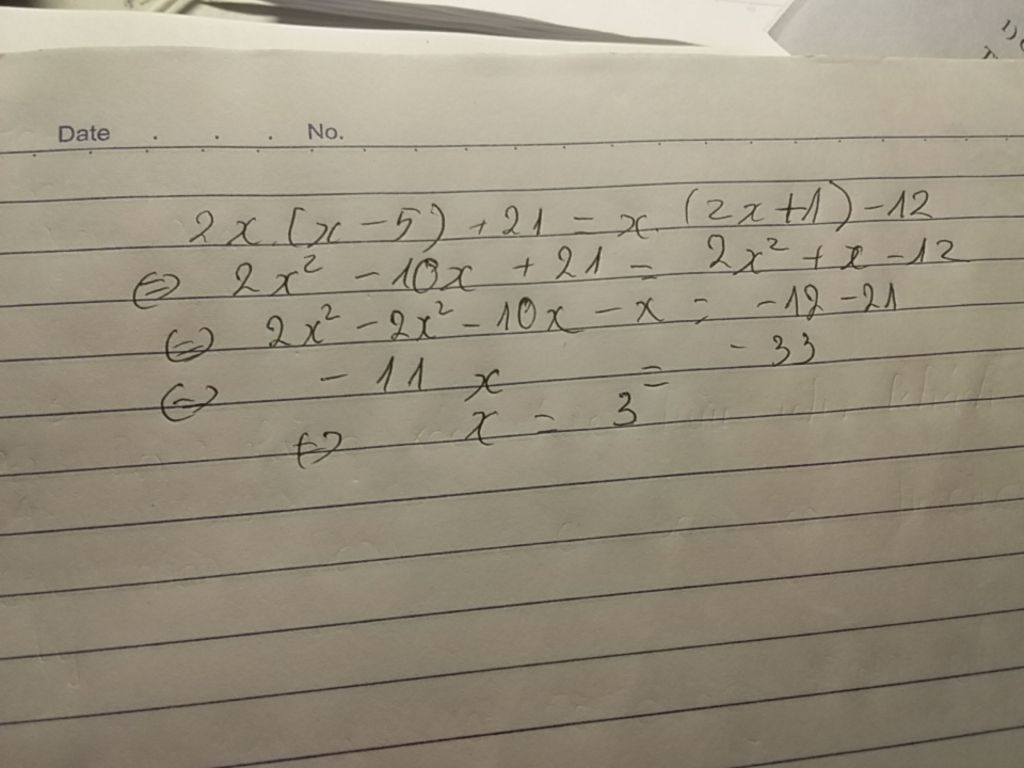 Date . . . No.
2x.(x-5)+21 = x.(2x+1)-12
⇔ 2x² -10x +21 = 2x² + x -12
⇔ 2x² -2x² -10x -x = -12 -21
⇔ -11x = -33
⇔ x = 3